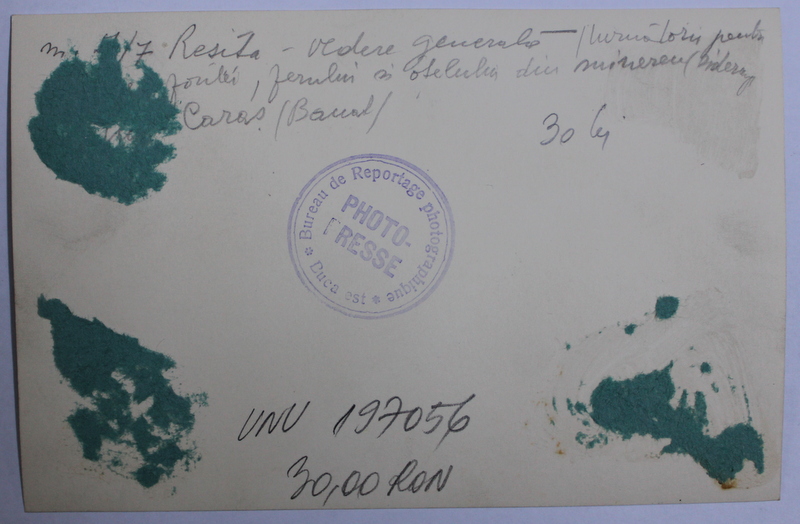 Resita - vedere generala - /turnătorii pentru
fontei, ferului si otelului din minereu/
Caras /Banat/
30 lei
* Bureau de Reportage photographique *
PHOTO-
PRESSE
Bucarest
VNV 197056
30,00 RON